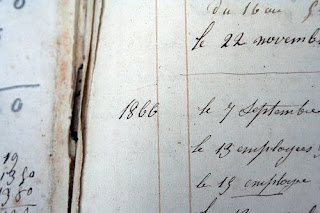 0
0
19
1350
du 16 au
le 22 novemb
1866 le 7 Septembre
le 13 employé
le 15 employe